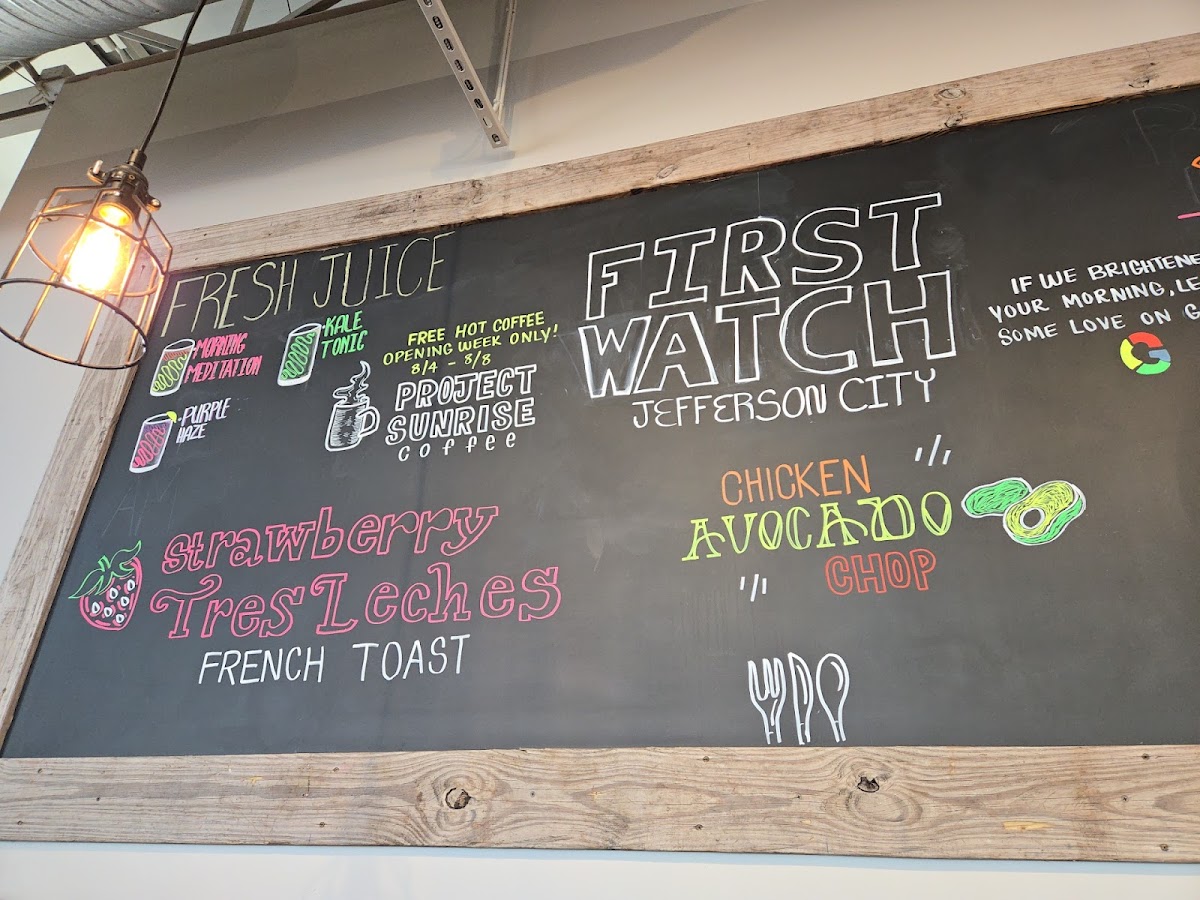 FRESH JUICE
MORNING
MEDITATION
KALE
TONIC
PURPLE
HAZE
FREE HOT COFFEE
OPENING WEEK ONLY!
8/4 - 8/8
PROJECT
SUNRISE
coffee
Strawberry
Tres Leches
FRENCH TOAST
FIRST
WATCH
JEFFERSON CITY
CHICKEN
AVOCADO
CHOP
IF WE
YOUR MORNING,
SOME LOVE ON
G